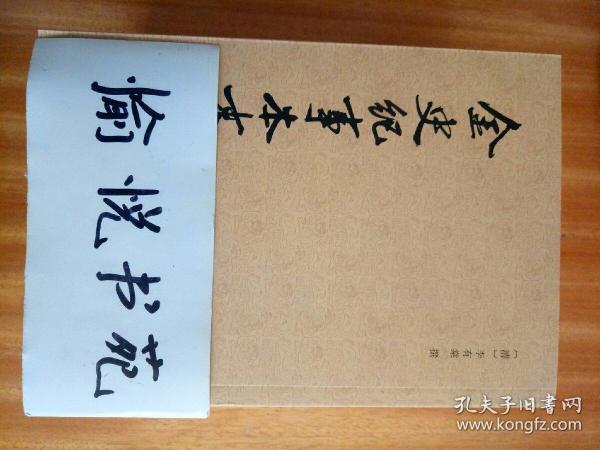 金史纪事本末
〔清〕李有棠 撰
愉悦书苑
孔夫子旧书网
www.kongfz.com